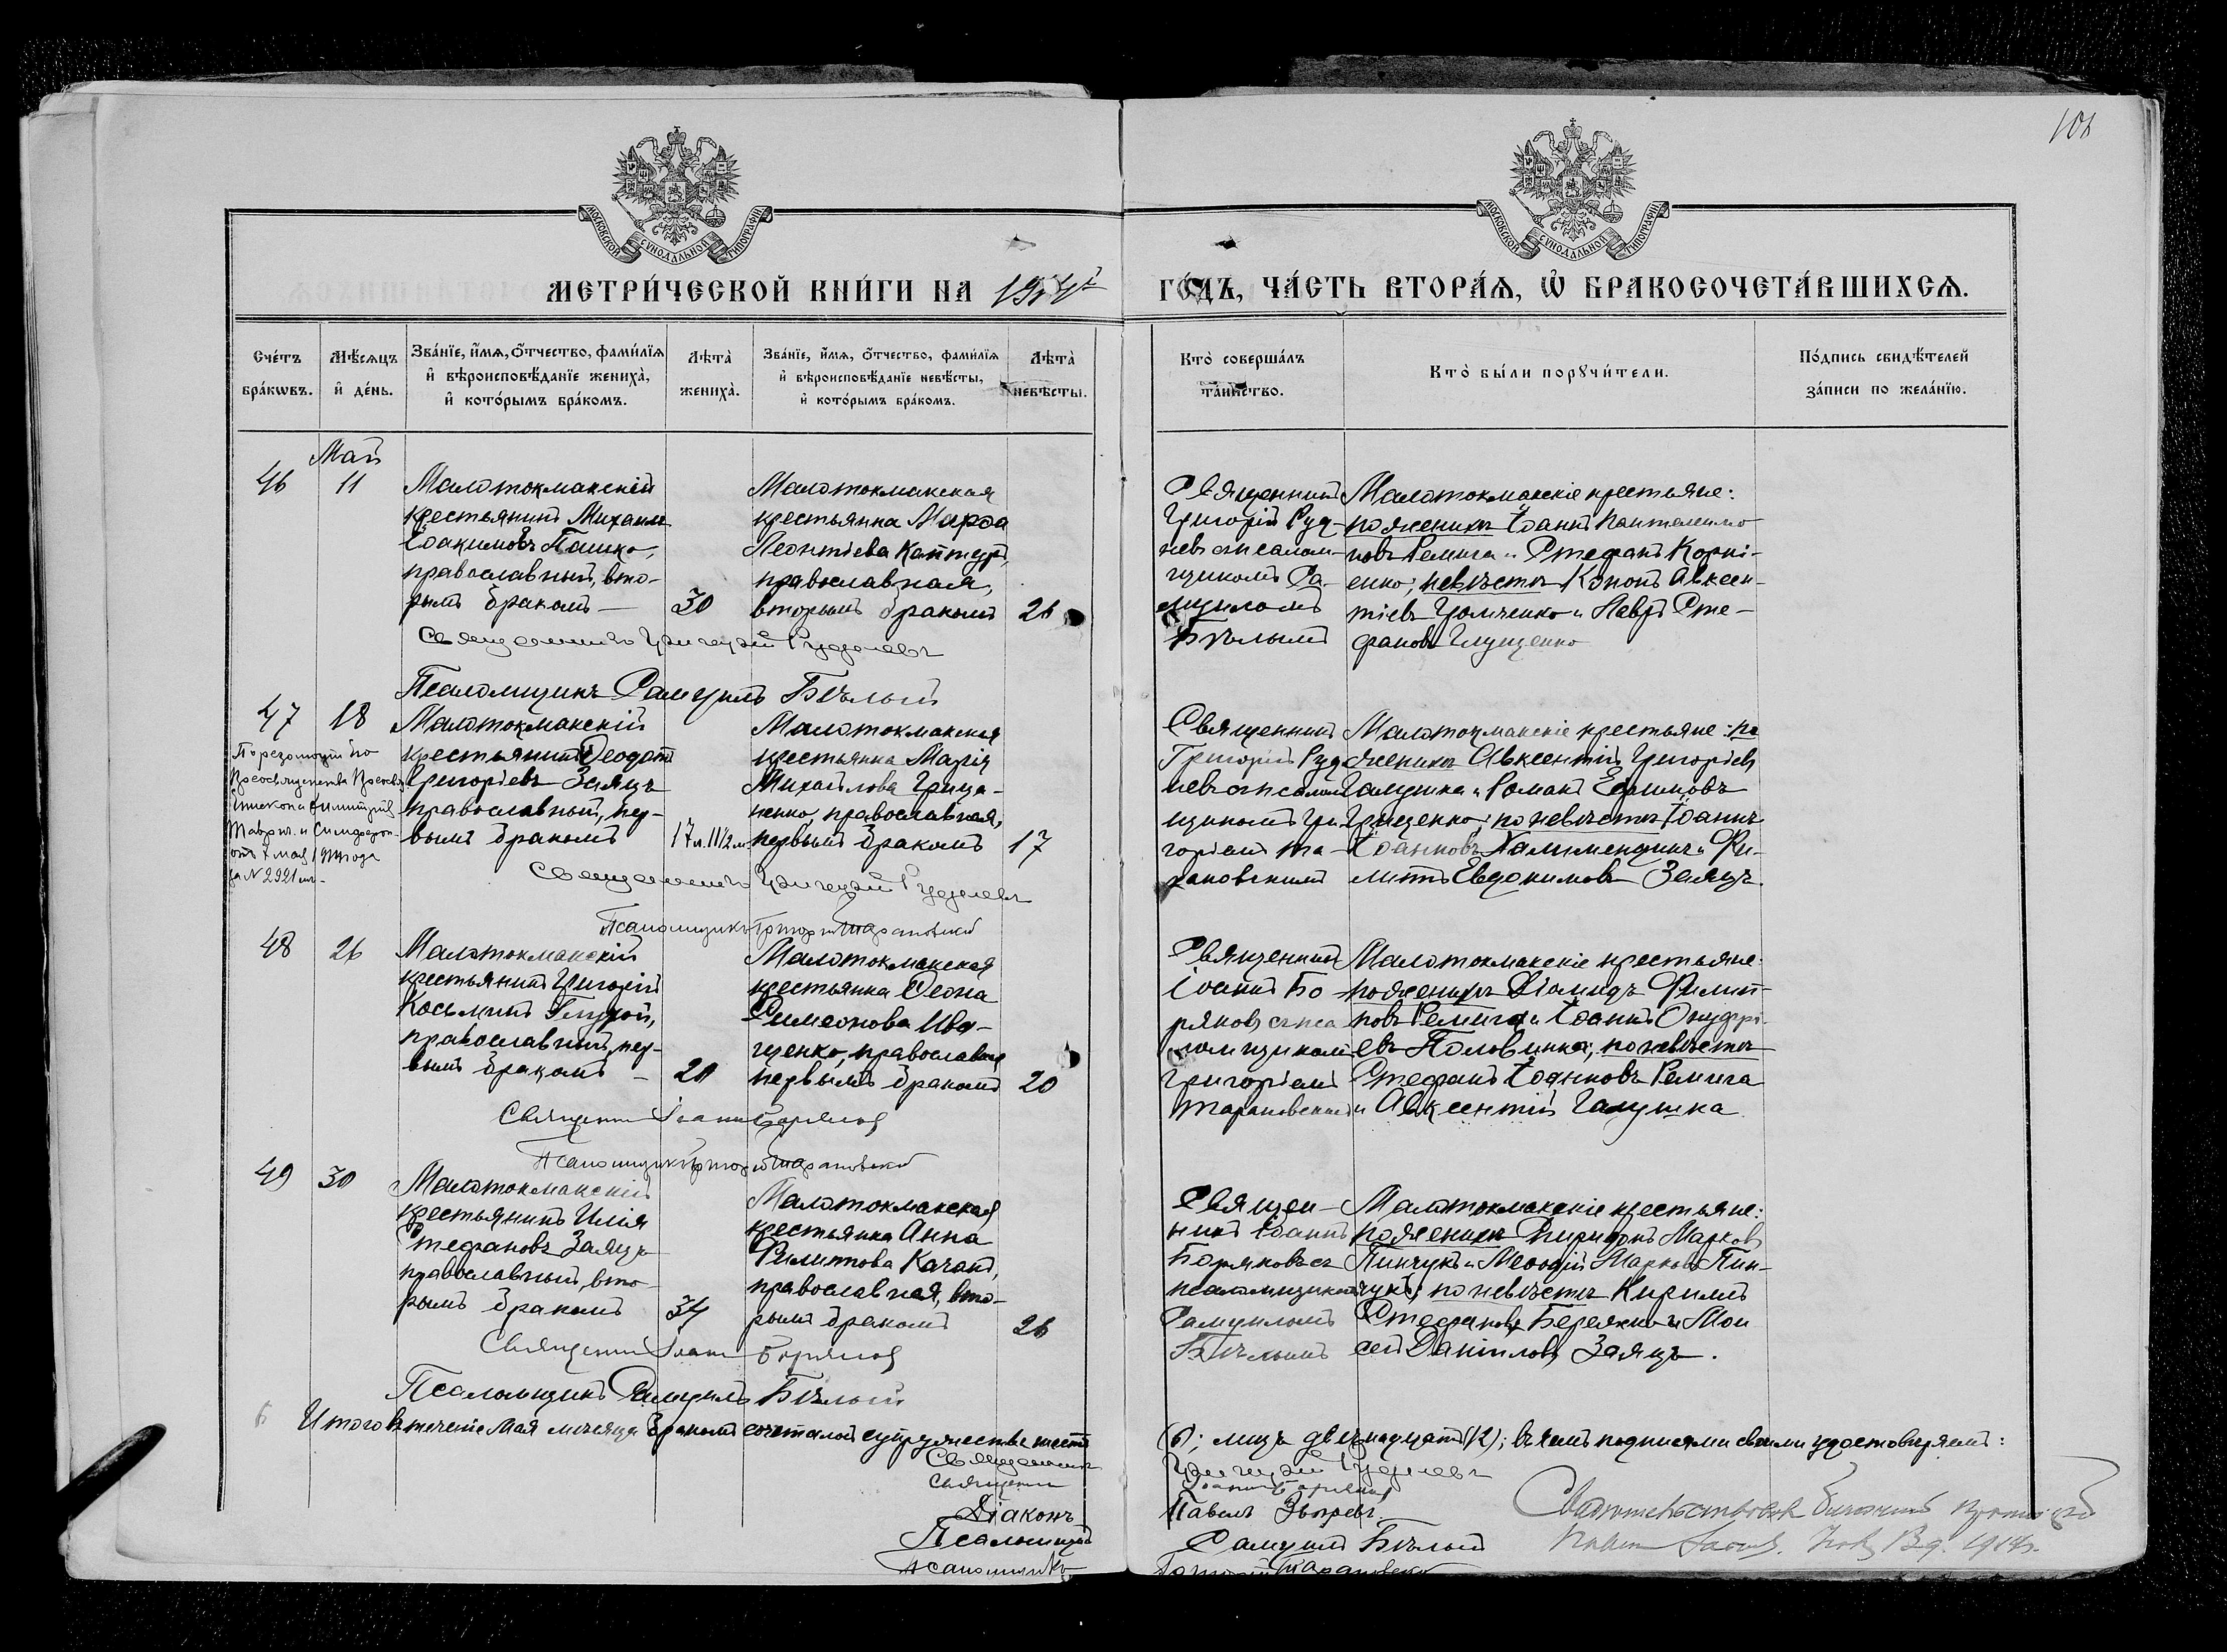 101
МОСКОВСКОЙ СУНОДАЛЬНОЙ ТИПОГРАФІИ
МОСКОВСКОЙ СУНОДАЛЬНОЙ ТИПОГРАФІИ
МЕТРИ́ЧЕСКОЙ КНИ́ГИ НА 1914й ГО́ДЪ, ЧА́СТЬ ВТОРА́Ѧ, Ѡ҆ БРАКОСОЧЕТА́ВШИХСѦ.
Сче́тъ бра́кѡвъ.
Мѣ́сѧцъ и҆ де́нь.
Зва́нїе, и҆́мѧ, ѻ҆́тчество, фами́лїѧ и҆ вѣроисповѣ́данїе жениха̀, и҆ кото́рымъ бра́комъ.
Лѣта̀ жениха̀.
Зва́нїе, и҆́мѧ, ѻ҆́тчество, фами́лїѧ и҆ вѣроисповѣ́данїе невѣ́сты, и҆ кото́рымъ бра́комъ.
Лѣта̀ невѣ́сты.
Кто̀ соверша́лъ та́инство.
Кто̀ бы́ли порꙋчи́тели.
По́дпись свидѣ́телей за́писи по жела́нїю.
Май
46
11
Малотокмакскій
крестьянинъ Михаилъ
Іоакимовъ Пашко,
православный, вто-
рымъ бракомъ —
30
Малотокмакская
крестьянка Марѳа
Леонтіева Каптуръ,
православная,
вторымъ бракомъ
26
Священникъ
Григорій Руд-
невъ съ псалом-
щикомъ Са-
муиломъ
Бѣлымъ
Малотокмакскіе крестьяне:
по женихѣ Іоаннъ Пантелеимо
новъ Ремыга и Стефанъ Корні-
енко; по невѣстѣ Кононъ Авксен-
тіевъ Громченко и Павлъ Сте-
фановъ Глущенко
Священникъ Григорій Рудневъ
Псаломщикъ Самуилъ Бѣлый
47
18
По резолюціи Его
Преосвященства Преосвящ
Епископа Димитрія
Таврич. и Симфероп-
отъ 7 мая 1914 года
за № 2921
Малотокмакскій
крестьянинъ Ѳеодотъ
Григоріевъ Заяцъ
православный, пер-
вымъ бракомъ
17 л. 11½ м.
Малотокмакская
крестьянка Марія
Михайлова Грица-
ненко, православная,
первымъ бракомъ
17
Священникъ
Григорій Руд
невъ съ псалом
щикомъ Гри
горіемъ Та-
рановскимъ
Малотокмакскіе крестьяне: по
женихѣ Авксентій Григоріевъ
Галушка и Романъ Ефимовъ
Грищенко; по невѣстѣ Іоаннъ
Іоанновъ и Фи-
липпъ Евдокимовъ Заяцъ.
Священникъ Григорій Рудневъ
Псаломщикъ Григорій Тарановскій
48
26
Малотокмакскій
крестьянинъ Григорій
Косьминъ Глухой,
православный, пер-
вымъ бракомъ —
20
Малотокмакская
крестьянка Ѳеона
Симеонова Ива-
щенко, православная
первымъ бракомъ
20
Священникъ
Іоаннъ Бо
ряковъ съ пса
ломщикомъ
Григоріемъ
Тарановскимъ
Малотокмакскіе крестьяне:
по женихѣ Діомидъ Филип-
повъ Ремыга и Іоаннъ Онуфрі-
евъ Половинка; по невѣстѣ
Стефанъ Іоанновъ Ремыга
и Авксентій Галушка
Священникъ Іоаннъ Боряковъ
Псаломщикъ Григорій Тарановскій
49
30
Малотокмакскій
крестьянинъ Илія
Стефановъ Заяцъ
православный, вто-
рымъ бракомъ
34
Малотокмакская
крестьянка Анна
Филиппова Качанъ,
православная, вто-
рымъ бракомъ
26
Священ-
никъ Іоаннъ
Боряковъ съ
псаломщикомъ
Самуиломъ
Бѣлымъ
Малотокмакскіе крестьяне:
по женихѣ Спиридонъ Марковъ
Пинчукъ и Меѳодій Марковъ Пин-
чукъ; по невѣстѣ Кириллъ
Стефановъ Бережной и Мои
сей Даніиловъ Заяцъ.
Священникъ Іоаннъ Боряковъ
Псаломщикъ Самуилъ Бѣлый
6 Итого въ теченіе Мая мѣсяца бракомъ сочеталось супружествъ шесть (6); лицъ двѣнадцать (12); въ чемъ подписями своими удостовѣряемъ:
Священникъ Григорій Рудневъ
Священникъ Іоаннъ Боряковъ
Діаконъ Павелъ Звѣревъ.
Псаломщикъ Самуилъ Бѣлый
Псаломщикъ Григорій Тарановскій
Свидѣтельствовалъ Благочинный 1914г.